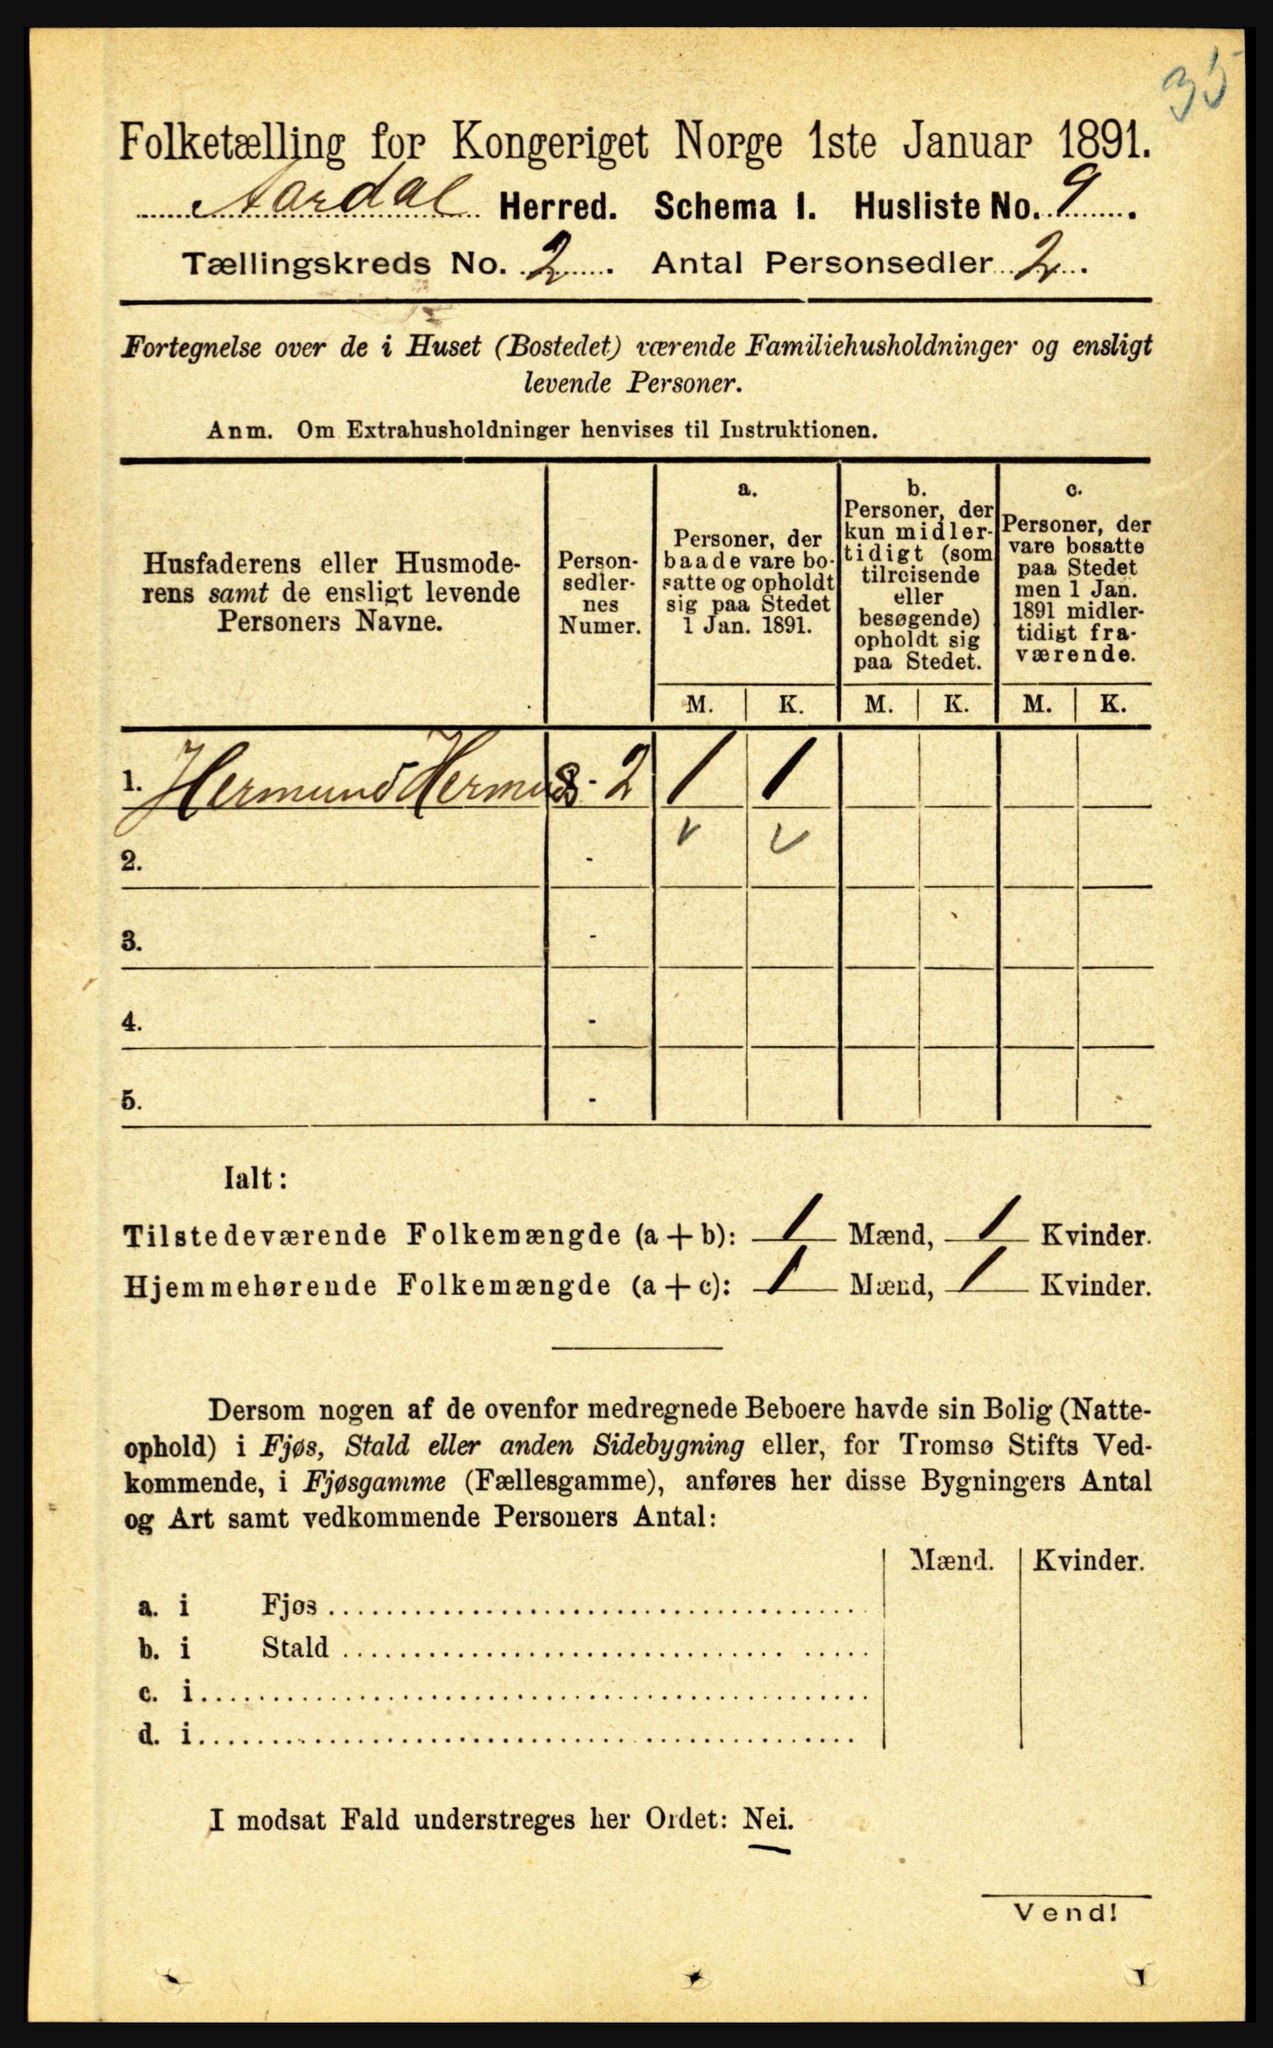 35
Folketælling for Kongeriget Norge 1ste Januar 1891.
Aardal Herred. Schema I. Husliste No. 9.
Tællingskreds No. 2. Antal Personsedler 2.
Fortegnelse over de i Huset (Bostedet) værende Familiehusholdninger og ensligt
levende Personer.
Anm. Om Extrahusholdninger henvises til Instruktionen.
Husfaderens eller Husmode-
rens samt de ensligt levende
Personers Navne.
Person-
sedler-
nes
Numer.
a.
Personer, der
baade vare bo-
satte og opholdt
sig paa Stedet
1 Jan. 1891.
b.
Personer, der
kun midler-
tidigt (som
tilreisende
eller
besøgende)
opholdt sig
paa Stedet.
c.
Personer, der
vare bosatte
paa Stedet
men 1 Jan.
1891 midler-
tidigt fra-
værende.
M. K. M. K. M. K.
1. Hermund - 2 1 1
2. -
3. -
4. -
5. -
Ialt:
Tilstedeværende Folkemængde (a + b): 1 Mænd, 1 Kvinder.
Hjemmehørende Folkemængde (a + c): 1 Mænd, 1 Kvinder.
Dersom nogen af de ovenfor medregnede Beboere havde sin Bolig (Natte-
ophold) i Fjøs, Stald eller anden Sidebygning eller, for Tromsø Stifts Ved-
kommende, i Fjøsgamme (Fællesgamme), anføres her disse Bygningers Antal
og Art samt vedkommende Personers Antal:
Mænd. Kvinder.
a. i Fjøs
b. i Stald
c. i
d. i
I modsat Fald understreges her Ordet: Nei.
Vend!